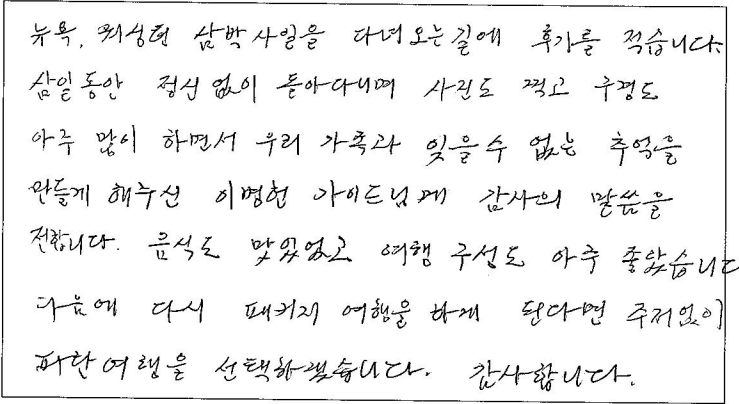 뉴욕, 워싱턴 삼박사일을 다녀오는길에 후기를 적습니다.
삼일동안 정신없이 돌아다니며 사진도 찍고 구경도
아주 많이 하면서 우리 가족과 잊을수 없는 추억을
만들게 해주신 이명헌 가이드님께 감사의 말씀을
전합니다. 음식도 맛있었고 여행 구성도 아주 좋았습니다
다음에 다시 패키지 여행을 하게 된다면 주저없이
파란여행을 선택하겠습니다. 감사합니다.